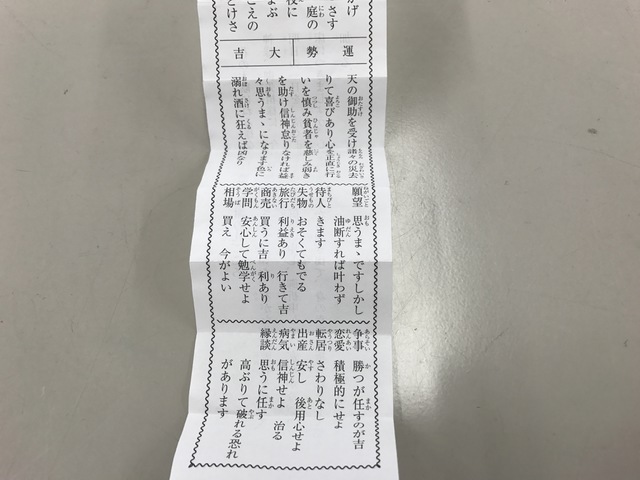 かげ
さす
庭の
枝に
よぶ
こえの
どけさ
運勢
大吉
天の御助を受け諸々の災去
りて喜びあり、心を正直に行
いを慎み貧者を慈しみ弱き
を助け信神怠りなければ益
々思うまゝになります色に
溺れ酒に狂えば凶なり
願望 思うまゝですしかし
油断すれば叶わず
待人 きます
失物 おそくてもでる
旅行 利益あり 行きて吉
商売 買うに吉 利あり
学問 安心して勉学せよ
相場 買え 今がよい
争事 勝つが任すのが吉
恋愛 積極的にせよ
転居 さわりなし
出産 安し 後用心せよ
病気 信神せよ 治る
縁談 思うに任す
高ぶりて破れる恐れ
があります